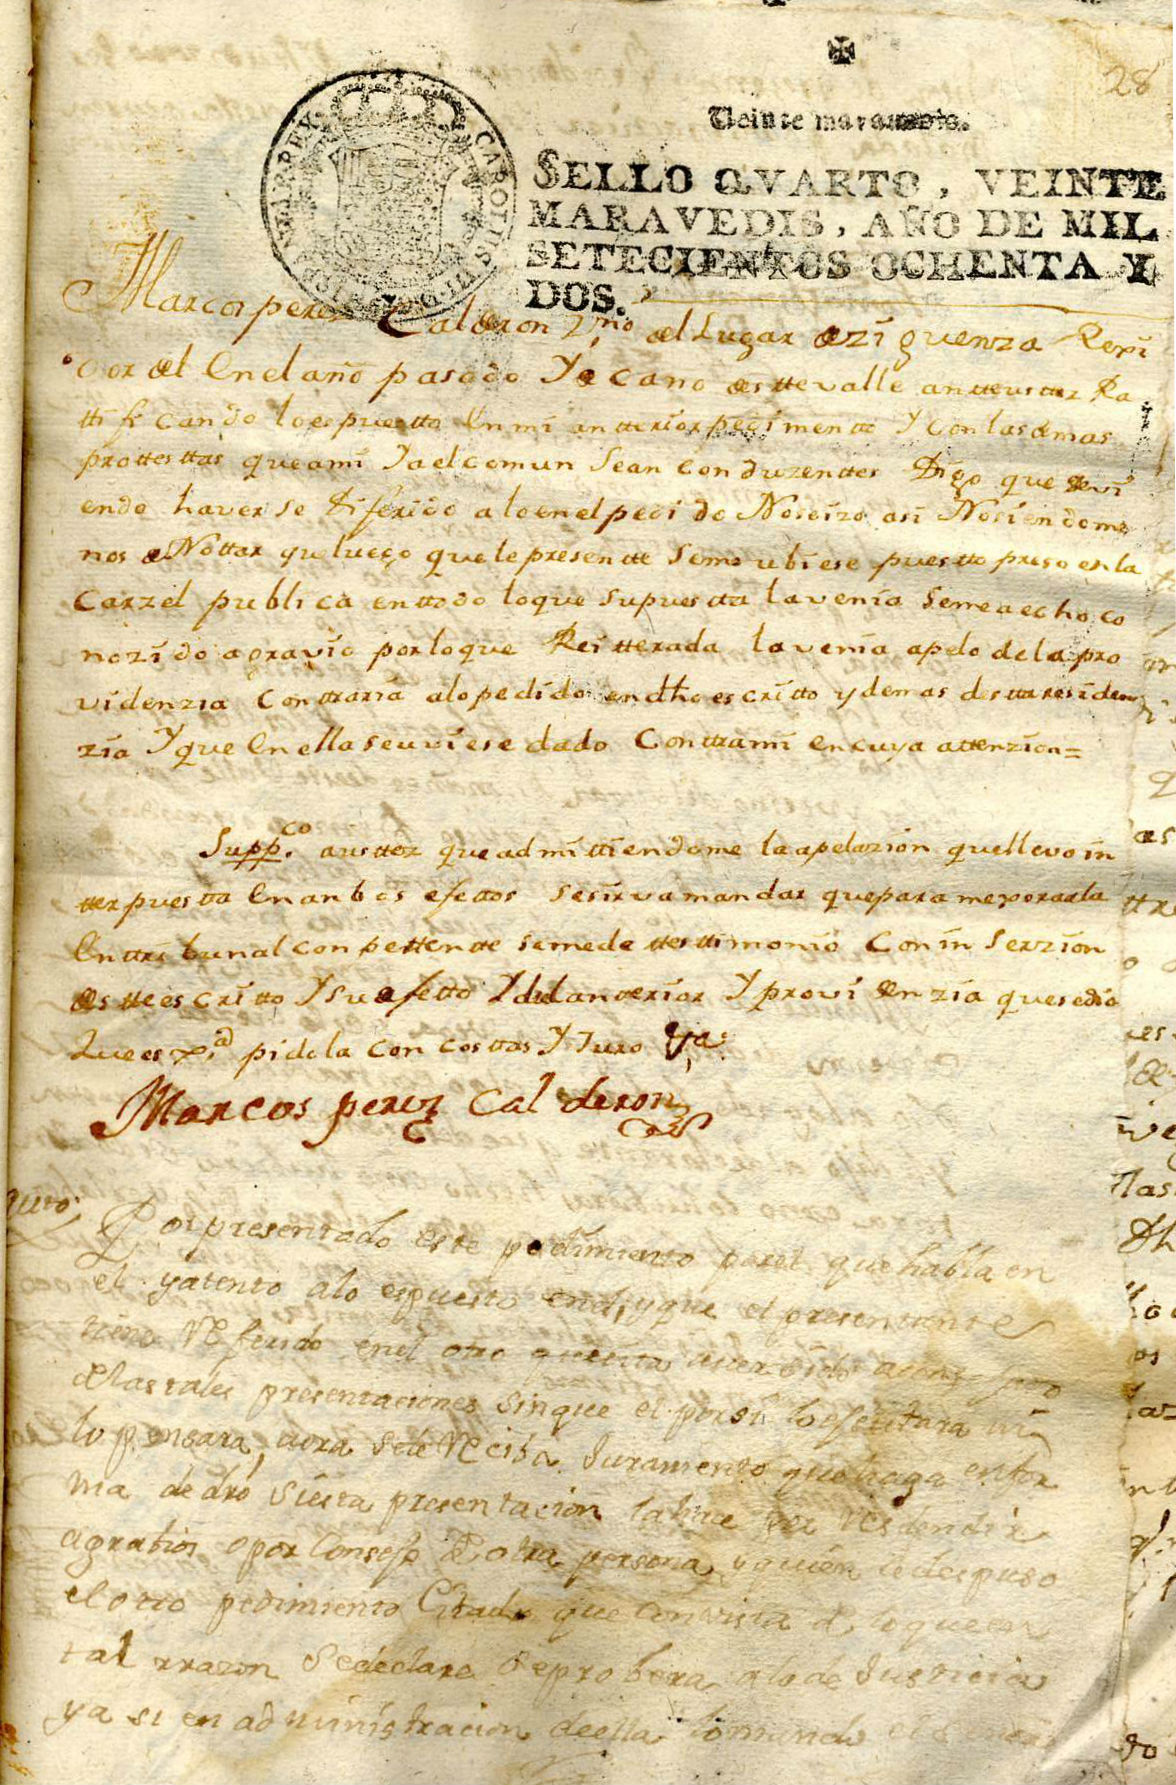 28
Veinte maravedis.
SELLO QVARTO, VEINTE
MARAVEDIS, AÑO DE MIL
SETECIENTOS OCHENTA Y
DOS.
CAROLUS III D
HISPANIAR REX
Marcos perez Calderon Vno del Lugar de ziguenza Rexi
dor del En el año pasado Y decano de estte valle antte usttez Ra
ttificando lo espuestto En mi antterior pedimentto Y con las demas
prottesttas que a mi Y a el comun Sean conduzenttes Digo que devi
endo haverse diferido a lo en el pedido No se izo asi No siendo me
nos de Nottar que luego que le presentte Se me ubiese puestto preso en la
Carzel publica en ttodo lo que Supuestta la venia Se me a echo co
nozido agravio por lo que Reitterada la venia apelo de la pro
videnzia Conttraria a lo pedido en dho escritto y demas de estta residen
zia Y que En ella se uviese dado Conttra mi en cuya attenzion =
Suppco a usttez que admittiendome la apelazion que llevo in
tterpuestta En anbos efettos se sirva mandar que para mexorarla
En ttribunal conpettentte se me de testtimonio Con inserzion
de estte escritto Y su efetto Y del anterior Y providenzia que se dio
que es Xa pido la con costtas Y Juro Ya
Marcos perez Calderon
Auto
Por presentado este pedimiento por el que habla en
el y atento a lo espuesto en el, y que el presentante
tiene Referido en el otro aver sido
de las tales presentaciones sin que el por si lo esecutara ni
lo pensara, aora se le Reciba Juramento que haga en for
ma de dro si esta presentacion la hace por
agrabios o por Consejo de otra persona y quien le dispuso
el otro pedimiento Citado que con vista de lo que en
tal rrazon se declare se probera a lo de Justicia
y asi en administracion de ella lo mando el Señor